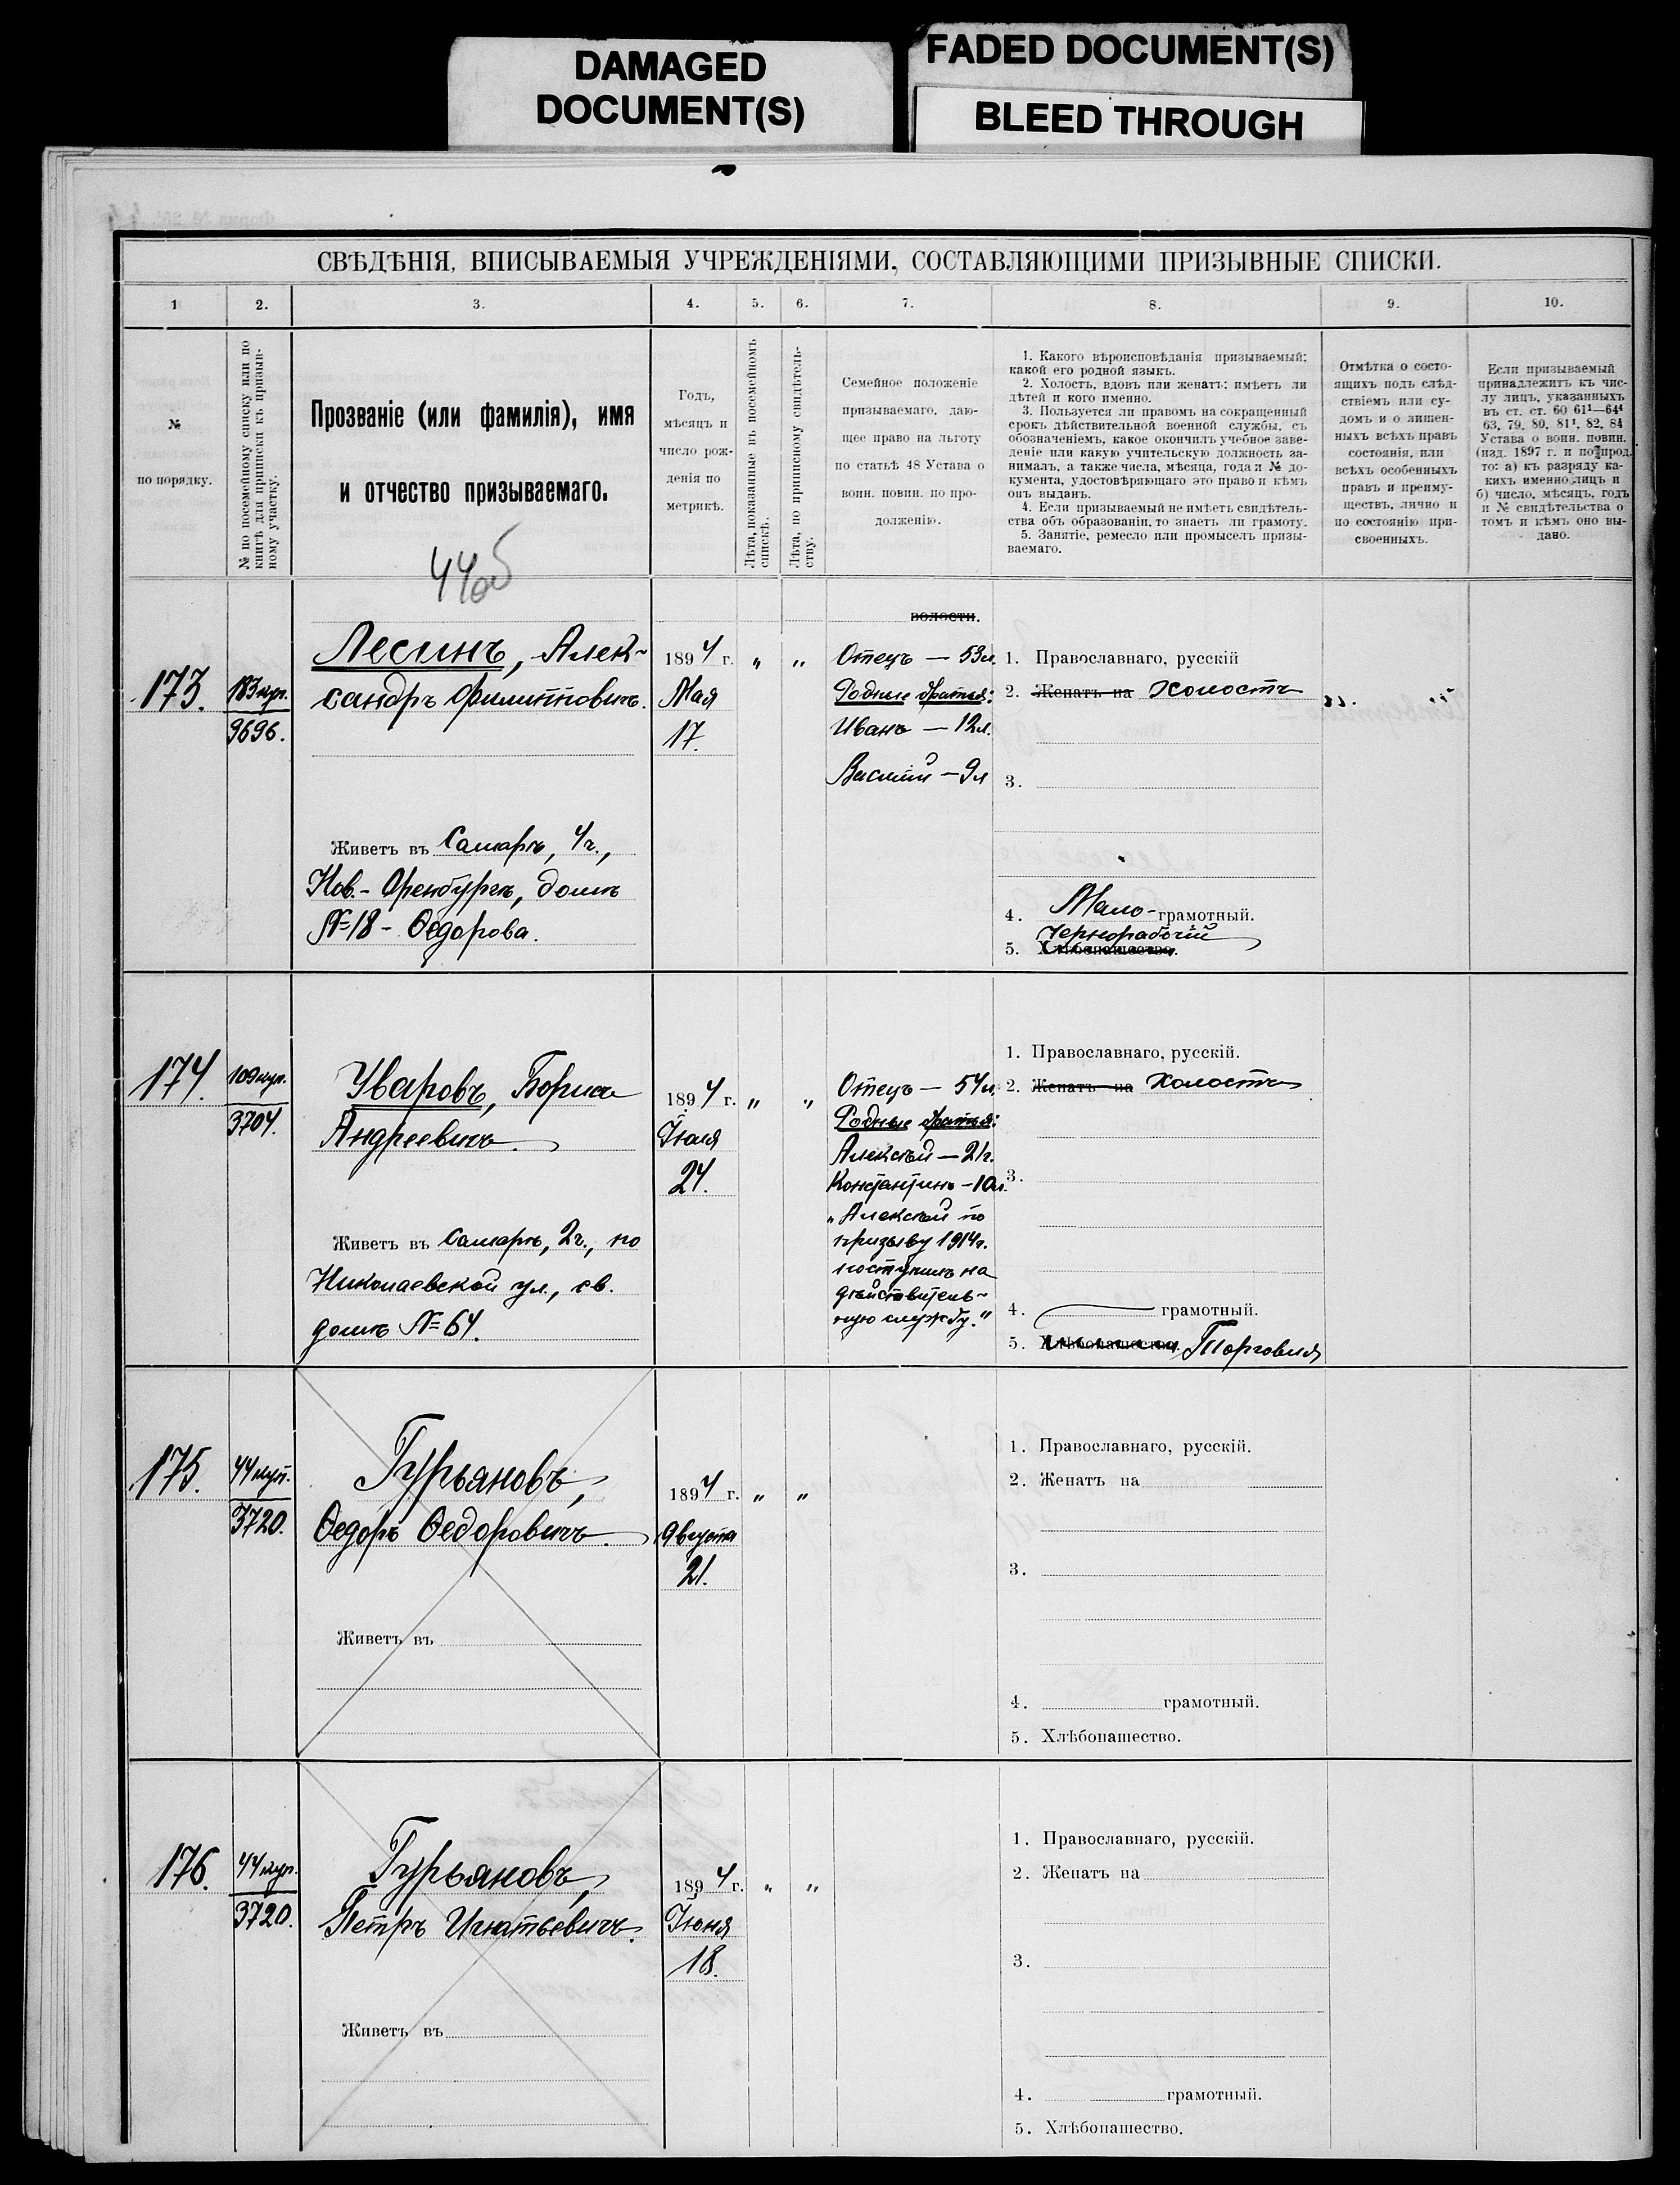 DAMAGED
DOCUMENT(S)
FADED DOCUMENT(S)
BLEED THROUGH
СВѢДѢНІЯ, ВПИСЫВАЕМЫЯ УЧРЕЖДЕНІЯМИ, СОСТАВЛЯЮЩИМИ ПРИЗЫВНЫЕ СПИСКИ.
1
2.
3.
4.
5.
6.
7.
8.
9.
10.
№
по порядку.
№ по посемейному списку или по
книгѣ для приписки къ призыв-
ному участку.
Прозваніе (или фамилія), имя
и отчество призываемаго.
44об
Годъ,
мѣсяцъ и
число рож-
денія по
метрикѣ.
Лѣта, показанные въ посемейномъ
спискѣ.
Лѣта, по приписному свидѣтель-
ству.
Семейное положеніе
призываемаго, даю-
щее право на льготу
по статьѣ 48 Устава о
воин. повин. по про-
долженію.
1. Какого вѣроисповѣданія призываемый;
какой его родной языкъ.
2. Холостъ, вдовъ или женатъ: имѣетъ ли
дѣтей и кого именно.
3. Пользуется ли правомъ на сокращенный
срокъ дѣйствительной военной службы, съ
обозначеніемъ, какое окончилъ учебное заве-
деніе или какую учительскую должность за-
нималъ, а также числа, мѣсяца, года и № до-
кумента, удостовѣряющаго это право и кѣмъ
онъ выданъ.
4. Если призываемый не имѣетъ свидѣтель-
ства объ образованіи, то знаетъ ли грамоту.
5. Занятіе, ремесло или промыселъ призы-
ваемаго.
Отмѣтка о состо-
ящихъ подъ слѣд-
ствіемъ или су-
домъ и о лишен-
ныхъ всѣхъ правъ
состоянія, или
всѣхъ особенныхъ
правъ и преиму-
ществъ, лично и
по состоянію при-
своенныхъ.
Если призываемый
принадлежитъ къ чис-
лу лицъ, указанныхъ
въ ст. ст. 60 61¹—64⁴
63, 79, 80, 81¹, 82, 84
Устава о воин. повин.
(изд. 1897 г. и по прод.
то: а) къ разряду ка-
кихъ именно лицъ и
б) число, мѣсяцъ, годъ
и № свидѣтельства о
томъ и кѣмъ оно вы-
дано.
173.
183 куп.
9696.
Лесинъ, Алек-
сандръ Филипповичъ.
Живетъ въ Самарѣ, 4 ч.,
Нов.-Оренбургѣ, домъ
№ 18 - Ѳедорова.
1894 г.
Мая
17.
" "
волости.
Отецъ — 53 л.
Родные братья:
Иванъ — 12 л.
Василій — 9 л
1. Православнаго, русскій
2. Женатъ на Холостъ
3.
4. Мало-грамотный.
Чернорабочій
5. Хлѣбопашество.
174.
109 куп.
3704.
Уваровъ, Борисъ
Андреевичъ.
Живетъ въ Самарѣ, 2 ч., по
Николаевской ул., св.
домъ № 64.
1894 г.
Іюля
24.
" "
Отецъ — 54 л.
Родные братья:
Алексѣй — 21 г.
Константинъ - 10 л.
„Алексѣй по
призыву 1914 г.
поступилъ на
дѣйствитель-
ную службу."
1. Православнаго, русскій.
2. Женатъ на Холостъ
3.
4. грамотный.
5. Хлѣбопашество. Торговля
175.
44 куп.
3720.
Гурьяновъ,
Ѳедоръ Ѳедоровичъ.
Живетъ въ
1894 г.
Августа
21.
" "
1. Православнаго, русскій.
2. Женатъ на
3.
4. грамотный.
5. Хлѣбопашество.
176.
44 куп.
3720.
Гурьяновъ,
Петръ Игнатьевичъ.
Живетъ въ
1894 г.
Іюня
18.
" "
1. Православнаго, русскій.
2. Женатъ на
3.
4. грамотный.
5. Хлѣбопашество.